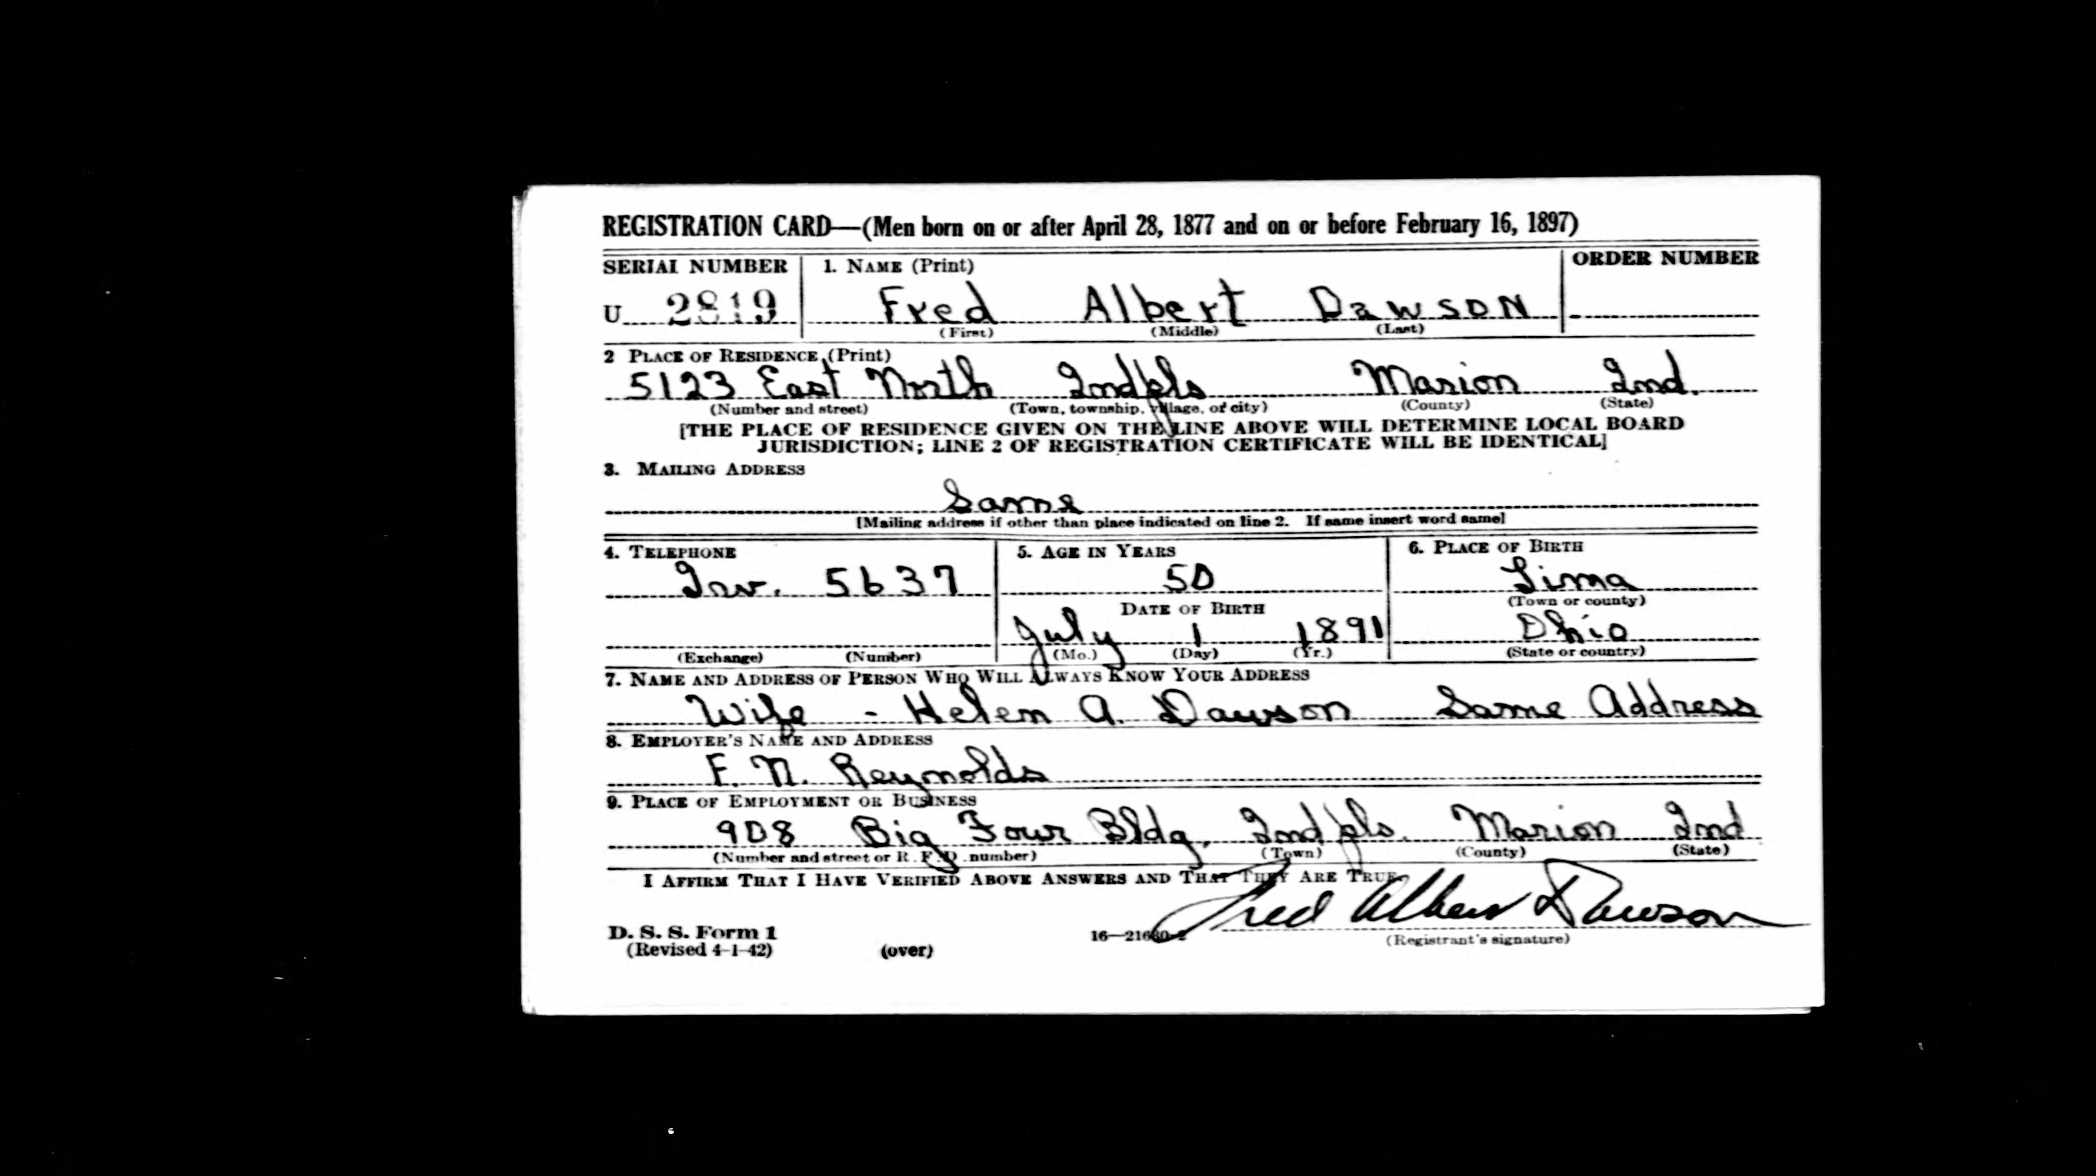 REGISTRATION CARD—(Men born on or after April 28, 1877 and on or before February 16, 1897)
SERIAL NUMBER 1. NAME (Print) ORDER NUMBER
U 2819 Fred Albert Dawson
(First) (Middle) (Last)
2 PLACE OF RESIDENCE (Print)
5123 East North Indpls Marion Ind.
(Number and street) (Town, township, village, or city) (County) (State)
[THE PLACE OF RESIDENCE GIVEN ON THE LINE ABOVE WILL DETERMINE LOCAL BOARD
JURISDICTION; LINE 2 OF REGISTRATION CERTIFICATE WILL BE IDENTICAL]
3. MAILING ADDRESS
Same
[Mailing address if other than place indicated on line 2. If same insert word same]
4. TELEPHONE 5. AGE IN YEARS 6. PLACE OF BIRTH
Irv. 5637 50 Lima
DATE OF BIRTH (Town or county)
July 1 1891 Ohio
(Exchange) (Number) (Mo.) (Day) (Yr.) (State or country)
7. NAME AND ADDRESS OF PERSON WHO WILL ALWAYS KNOW YOUR ADDRESS
Wife - Helen A. Dawson Same Address
8. EMPLOYER'S NAME AND ADDRESS
F. N. Reynolds
9. PLACE OF EMPLOYMENT OR BUSINESS
908 Big Four Bldg. Indpls. Marion Ind
(Number and street or R. F. D. number) (Town) (County) (State)
I AFFIRM THAT I HAVE VERIFIED ABOVE ANSWERS AND THAT THEY ARE TRUE.
Fred Albert Dawson
D. S. S. Form 1 16—21630-2 (Registrant's signature)
(Revised 4-1-42) (over)